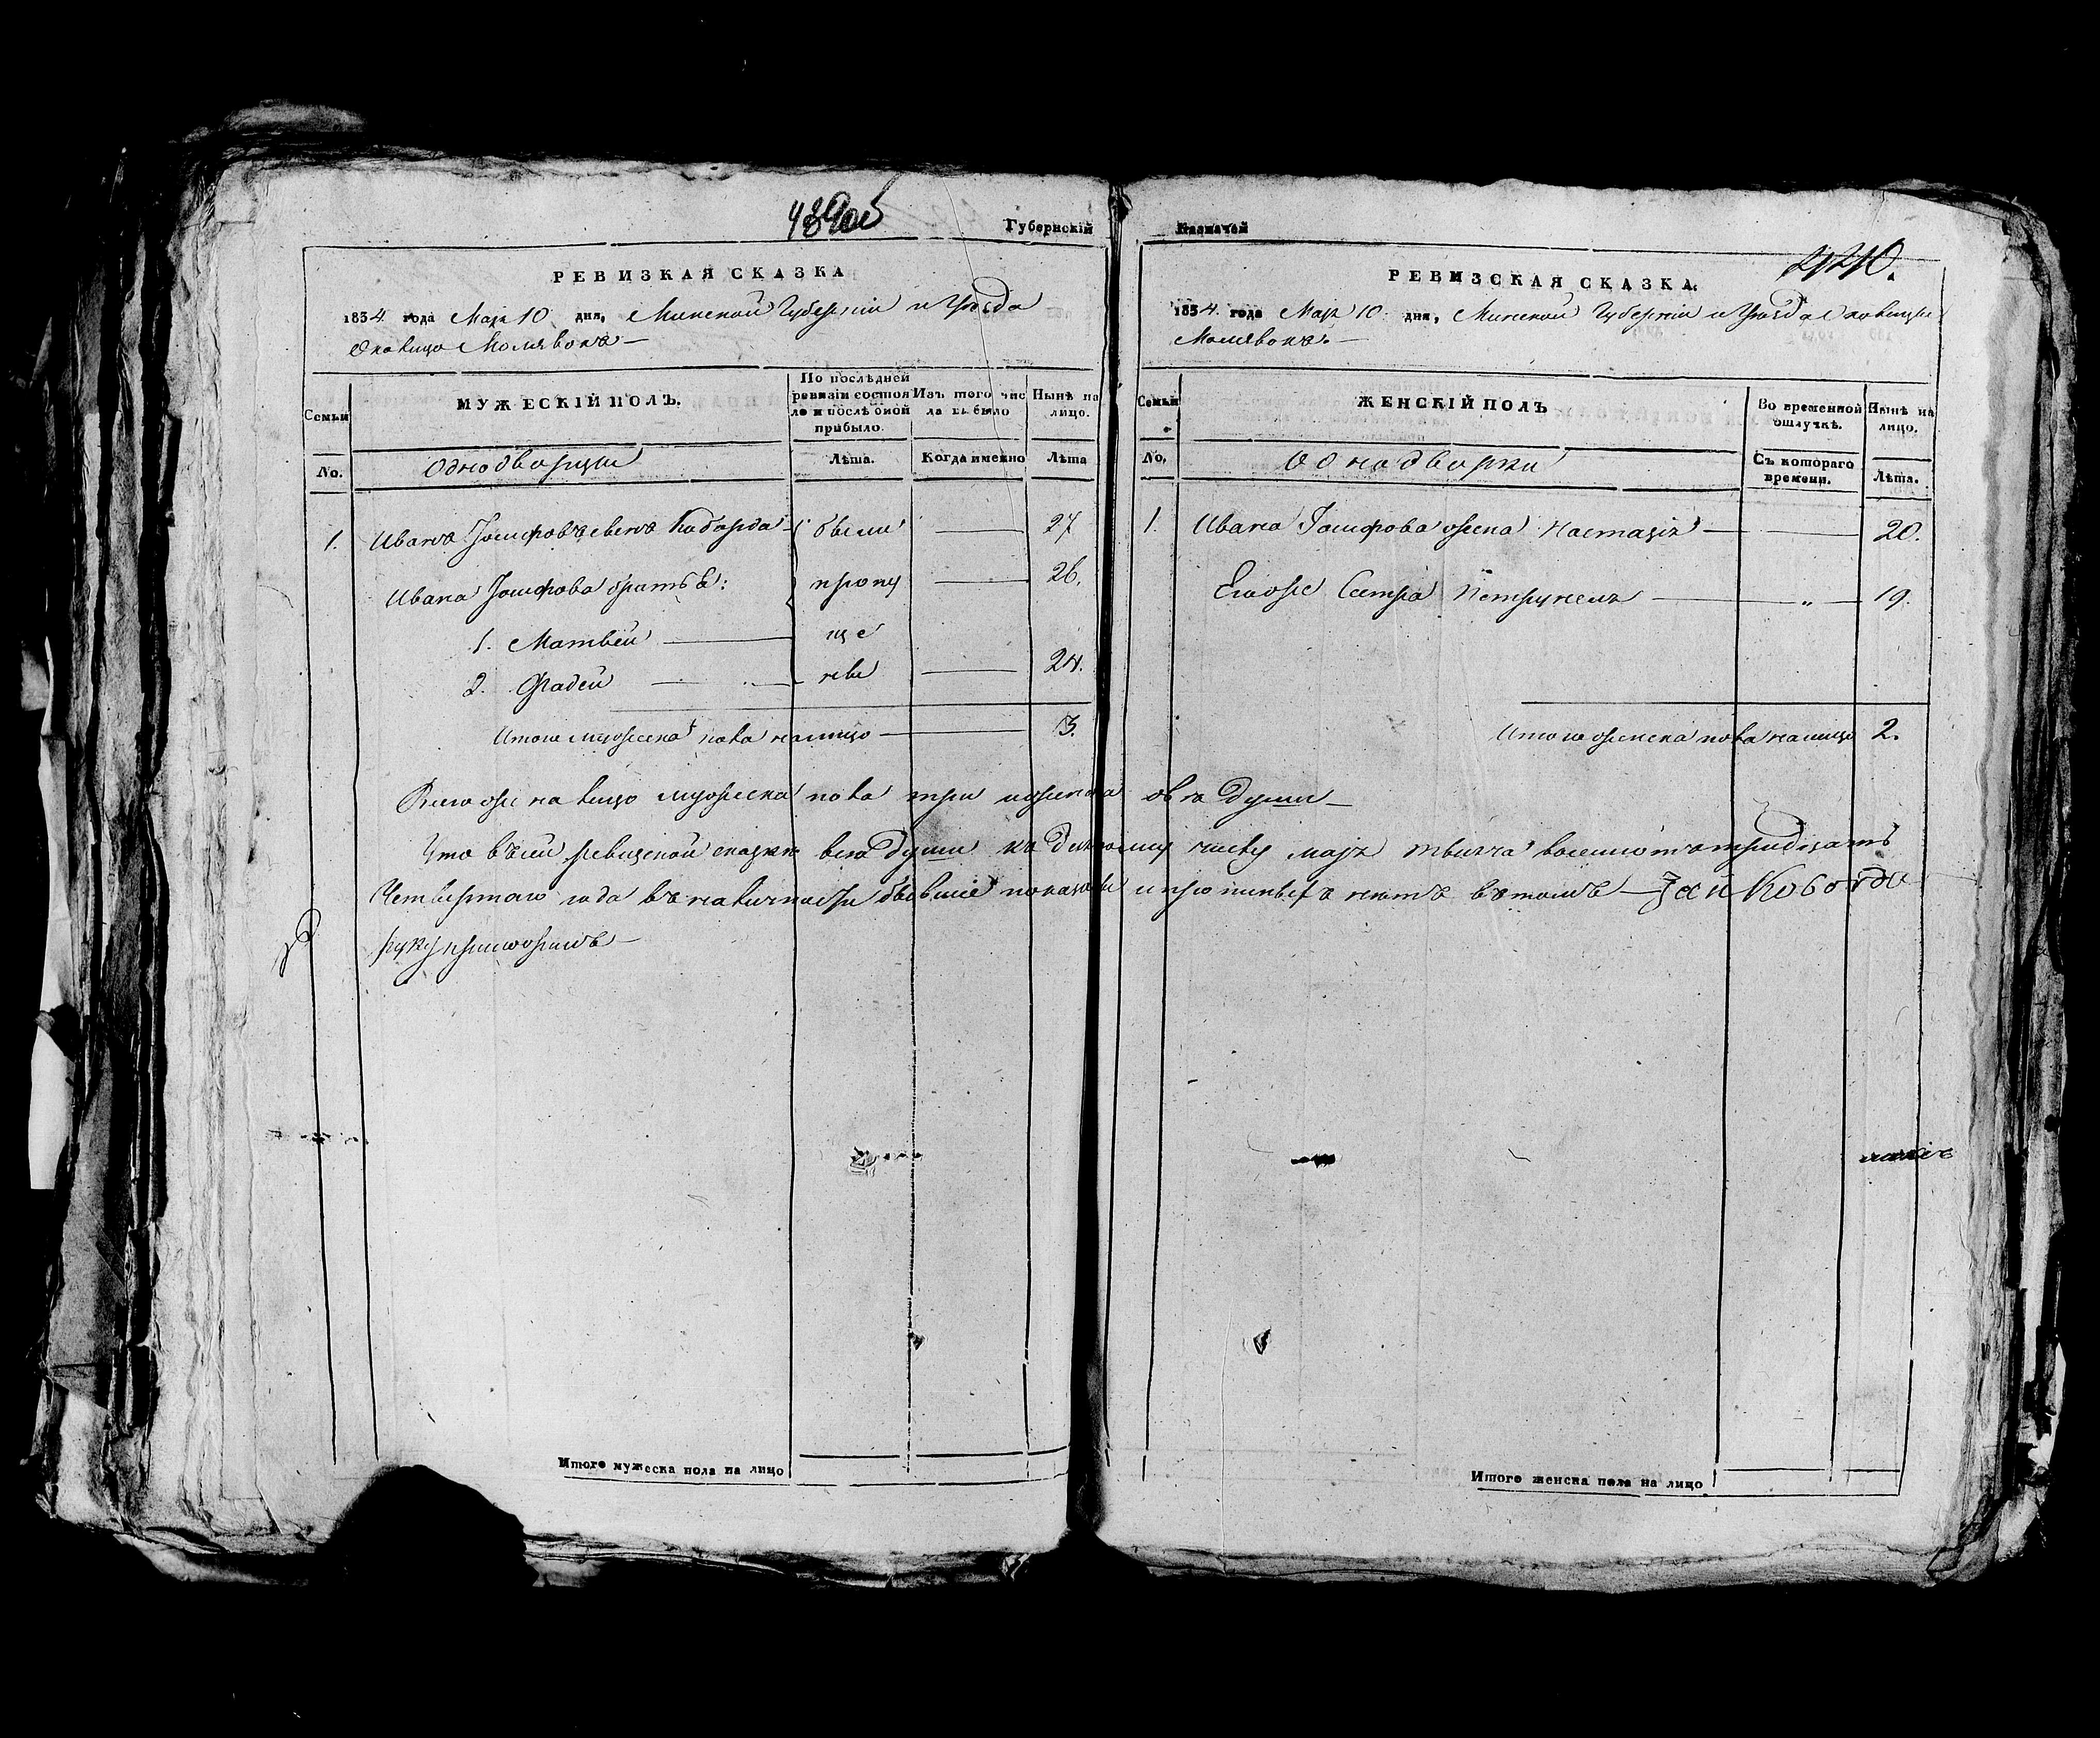 439об
Губернскій
РЕВИЗКАЯ СКАЗКА
1834 года Маія 10 дня, Минской Губерніи и Уѣзда
Околицо Молявокъ —
Семьи
МУЖЕСКІЙ ПОЛЪ.
По послѣдней ревизіи состояло и послѣ оной прибыло.
Изъ того числа выбыло
Нынѣ на лицо.
No.
Однодворцы
Лѣта.
Когда именно
Лѣта
1. Иванъ Іосифовъ сынъ Коборда были — 27
Ивана Іосифова братья: пропу — 26.
1. Матвей — ще
2. Фадей — ны — 24.
Итого мужеска пола налицо — 3.
Итого мужеска пола на лицо
Казначей
440.
РЕВИЗСКАЯ СКАЗКА.
1834 года Маія 10 дня, Минской Губерніи и Уѣзда Околицы
Молявокъ. —
Семьи
ЖЕНСКІЙ ПОЛЪ
Во временной отлучкѣ.
Нынѣ на лицо.
No.
Однодворки
Съ котораго времени.
Лѣта.
1. Ивана Іосифова жена Настація — 20.
Егоже Сестра Петрунеля — „ — 19.
Итого женска пола налицо 2.
Всегоже на лицо мужеска пола три и женска двѣ души —
Что въ сей ревизской сказке всѣ души къ десятому числу маія тысяча восемсотъ тридцать
Четвертаго года въ наличности бывшіе показаны и прописныхъ нетъ въ томъ — Jan Koborda
руку приложилъ —
Итого женска пола на лицо